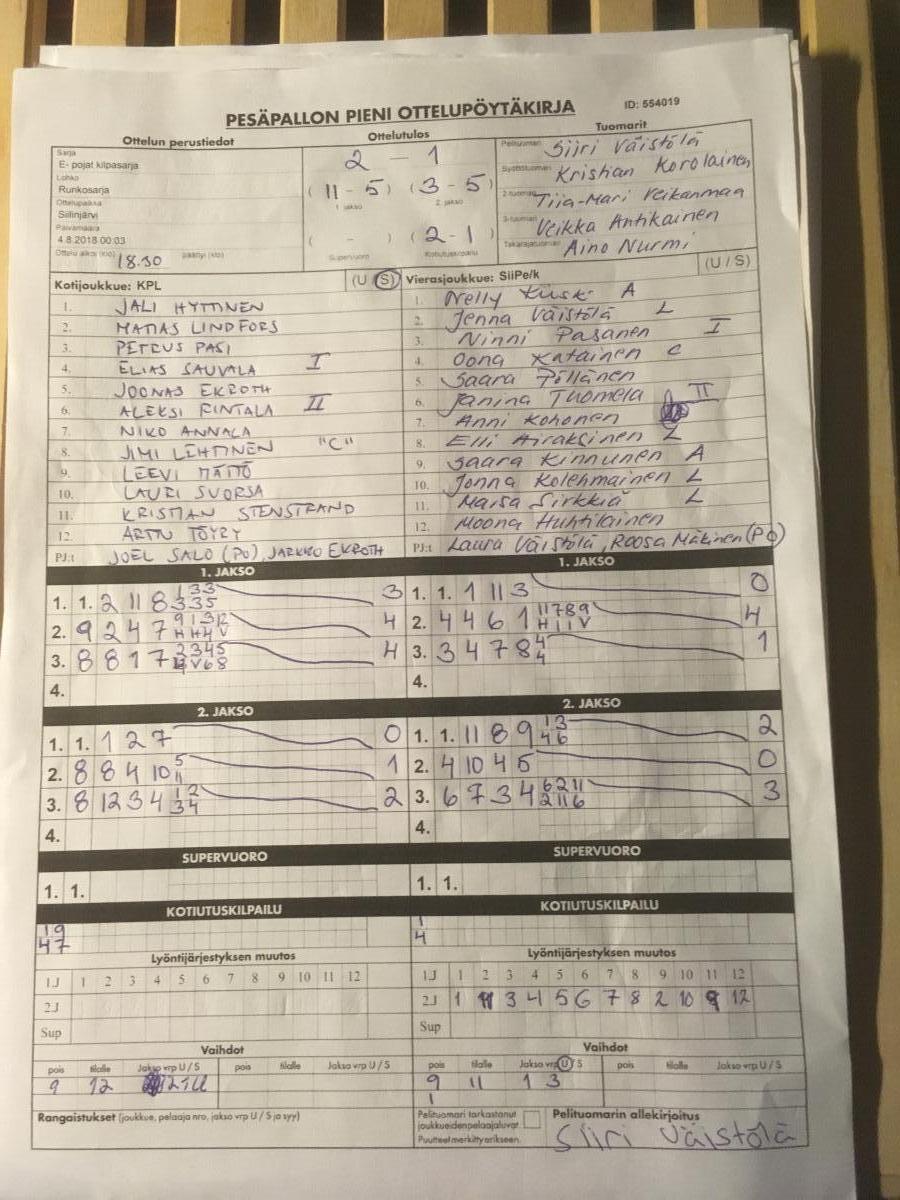 PESÄPALLON PIENI OTTELUPÖYTÄKIRJA ID: 554019
Ottelun perustiedot Ottelutulos Tuomarit
Sarja
E- pojat kilpasarja
Lohko
Runkosarja
Ottelupaikka
Siilinjärvi
Päivämäärä
4.8.2018 00:03
Ottelu alkoi (klo) 18.30 päättyi (klo)
2 - 1
(11-5) (3-5)
1. jakso 2. jakso
( - ) (2-1)
Supervuoro Kotiutuskilpailu
Pelituomari Siiri Väistölä
Syöttötuomari Kristian Korolainen
2-tuomari Tiia-Mari Veikanmaa
3-tuomari Veikka Antikainen
Takarajatuomari Aino Nurmi
Kotijoukkue: KPL (U / S)
1. JALI HYTTINEN
2. MATIAS LINDFORS
3. PETRUS PASI
4. ELIAS SAUVALA I
5. JOONAS EKROTH
6. ALEKSI RINTALA II
7. NIKO ANNALA
8. JIMI LEHTINEN "C"
9. LEEVI MÄTTÖ
10. LAURI SUORSA
11. KRISTIAN STENSTRAND
12. ARTTU TÖYRY
PJ:t JOEL SALO (PO), JARKKO EKROTH
Vierasjoukkue: SiiPe/k (U / S)
1. Nelly A
2. Jenna Väistölä L
3. Ninni Pasanen I
4. Oona Katainen C
5. Saara Pöllänen
6. Janina Tuomela II
7. Anni Kohonen
8. Elli Airaksinen L
9. Saara Kinnunen A
10. Jonna Kolehmainen L
11. Maisa Sirkkiä L
12. Moona Huhtilainen
PJ:t Laura Väistölä, Roosa Mäkinen (PO)
1. JAKSO
1. 1. 2 11 8 3
2. 9 2 4 7 4
3. 8 8 1 7 4
4.
1. JAKSO
1. 1. 1 11 3 0
2. 4 4 6 1 4
3. 3 4 7 8 4 4 1
4.
2. JAKSO
1. 1. 1 2 7 0
2. 8 8 4 10 5 11 1
3. 8 12 3 4 1 2 3 4 2
4.
2. JAKSO
1. 1. 11 8 9 1 3 4 6 2
2. 4 10 4 5 0
3. 6 7 3 4 6 2 11 2 11 6 3
4.
SUPERVUORO
1. 1.
SUPERVUORO
1. 1.
KOTIUTUSKILPAILU
1 9
4 7
KOTIUTUSKILPAILU
1
4
Lyöntijärjestyksen muutos
1J 1 2 3 4 5 6 7 8 9 10 11 12
2J
Sup
Lyöntijärjestyksen muutos
1J 1 2 3 4 5 6 7 8 9 10 11 12
2J 1 11 3 4 5 6 7 8 2 10 9 12
Sup
Vaihdot
pois tilalle Jakso vrp U / S pois tilalle Jakso vrp U / S
9 12
Vaihdot
pois tilalle Jakso vrp U / S pois tilalle Jakso vrp U / S
9 11 1 3
1
Rangaistukset (joukkue, pelaaja nro, jakso vrp U / S ja syy)
Pelituomari tarkastanut
joukkueiden pelaajaluvat.
Puutteet merkitty erikseen.
Pelituomarin allekirjoitus
Siiri Väistölä